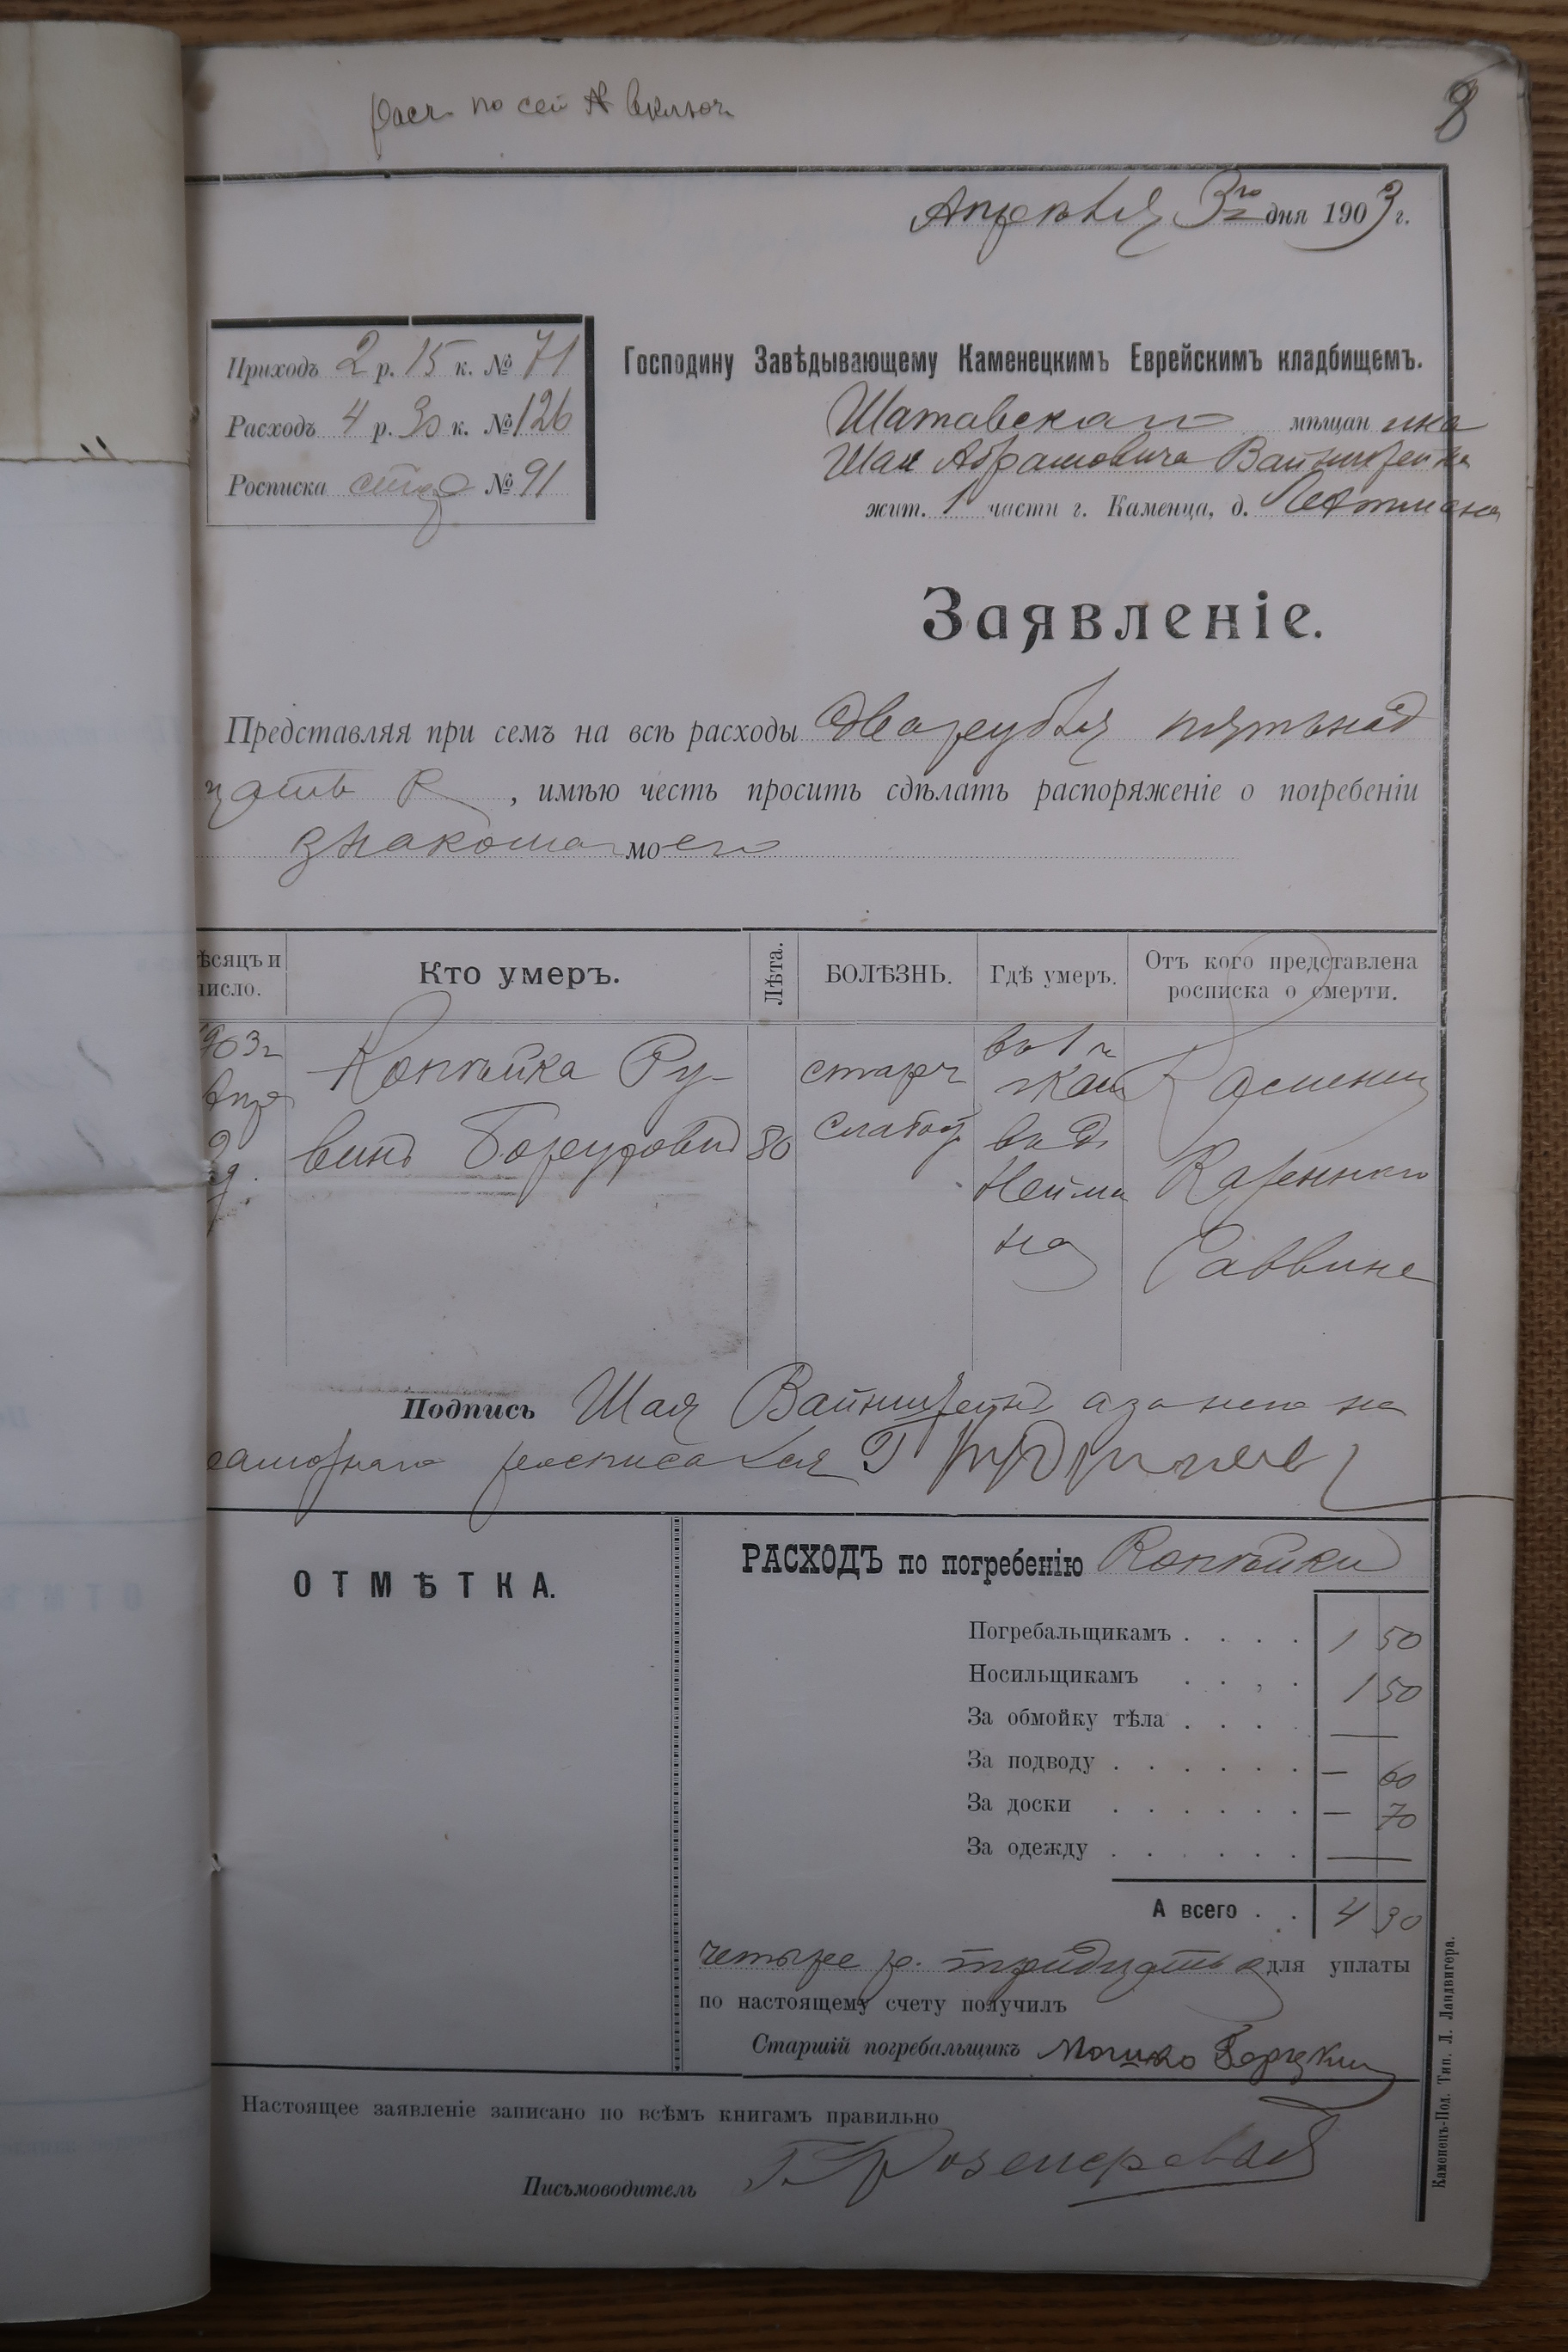 расч по сей № включ
8
Апрѣля 3го дня 1903 г.
Приходъ 2 р. 15 к. № 71
Расходъ 4 р. 30 к. № 126
Росписка № 91
Господину Завѣдывающему Каменецкимъ Еврейскимъ кладбищемъ.
Шатавскаго мѣщанина
Шаи Абрамовича Вайнштейна
жит. 1 части г. Каменца, д.
Заявленіе.
Представляя при семъ на всѣ расходы два рубля пятнад
цать к , имѣю честь просить сдѣлать распоряженіе о погребеніи
знакома моего
ѣсяцъ и число.
Кто умеръ.
Лѣта.
БОЛѢЗНЬ.
Гдѣ умеръ.
Отъ кого представлена росписка о смерти.
1903г
Апр
Копѣйка Ру-
винъ 80
старч
слабос
въ 1 ч
г Кам
въ д
Нейма
на
Каменец
Казеннаго
Раввина
Подпись Шая Вайнштейнъ а за него не
грамотнаго росписался Г
ОТМѢТКА.
РАСХОДЪ по погребенію Копѣйки
Погребальщикамъ . . . . 1 50
Носильщикамъ . . , . 1 50
За обмойку тѣла . . . . —
За подводу . . . . . . — 60
За доски . . . . . . — 70
За одежду . . . . . . —
А всего . . 4 30
четыре р. тридцать к для уплаты
по настоящему счету получилъ
Старшій погребальщикъ Мошко
Настоящее заявленіе записано по всѣмъ книгамъ правильно
Письмоводитель
Каменецъ-Под. Тип. Л. Ландвигера.